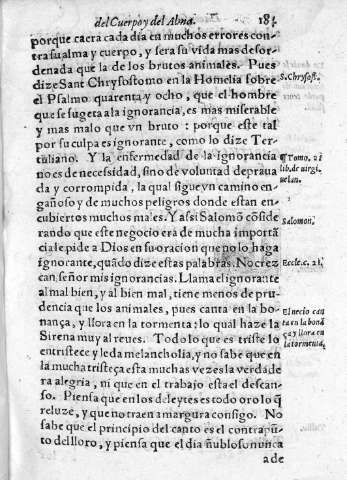 del Cuerpo y del Alma. 181
porque caera cada dia en muchos errores con
tra su alma y cuerpo, y sera su vida mas desor-
denada que la de los brutos animales. Pues
dize Sant Chrysostomo en la Homelia sobre
S. Chrysost.
el Psalmo quarenta y ocho, que el hombre
que se sugeta a la ignorancia, es mas miserable
y mas malo que vn bruto: porque este tal
por su culpa es ignorante, como lo dize Ter-
tuliano. Y la enfermedad de la ignorancia
¶ Tomo. 2 i
no es de necessidad, sino de voluntad depraua
lib. de virgi
da y corrompida, la qual sigue vn camino en-
uelan.
gañoso y de muchos peligros donde estan en-
cubiertos muchos males. Y assi Salomō cōside
Salomon.
rando que este negocio era de mucha importā
cia le pide a Dios en su oracion que no lo haga
ignorante, quādo dize estas palabras. No crez
Eccle. c. 21.
can, señor mis ignorancias. Llama el ignorante
al mal bien, y al bien mal, tiene menos de pru-
dencia que los animales, pues canta en la bo-
El necio can
nança, y llora en la tormenta: lo qual haze la
ta en la bonā
Sirena muy al reues. Todo lo que es triste lo
ça y llora en
entristece y le da melancholia, y no sabe que en
la tormenta.
la mucha tristeça esta muchas vezes la verdade
ra alegria, ni que en el trabajo esta el descan-
so. Piensa que en los deleytes es todo oro lo q̄
reluze, y que no traen amargura consigo. No
sabe que el principio del canto es el contrapū̄
to del lloro, y piensa que el dia ñubloso nunca
a de